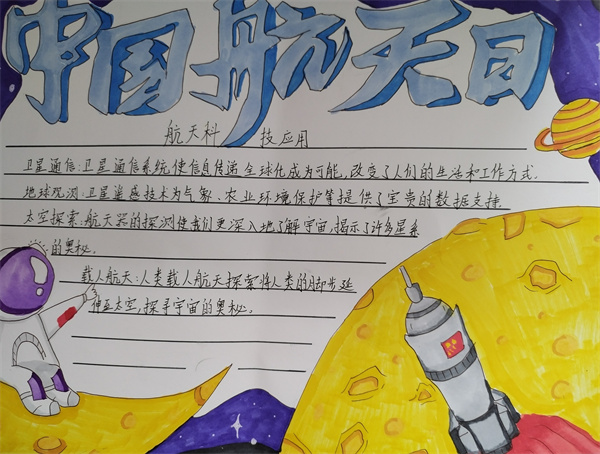 中国航天日
航天科 技应用
卫星通信:卫星通信系统使信息传递全球化成为可能,改变了人们的生活和工作方式.
地球观测:卫星遥感技术为气象、农业环境保护等提供了宝贵的数据支持
太空探索:航天器的探测使我们更深入地了解宇宙,揭示了许多星系
的奥秘.
载人航天:人类载人航天探索将人类的脚步延
伸至太空,探寻宇宙的奥秘.